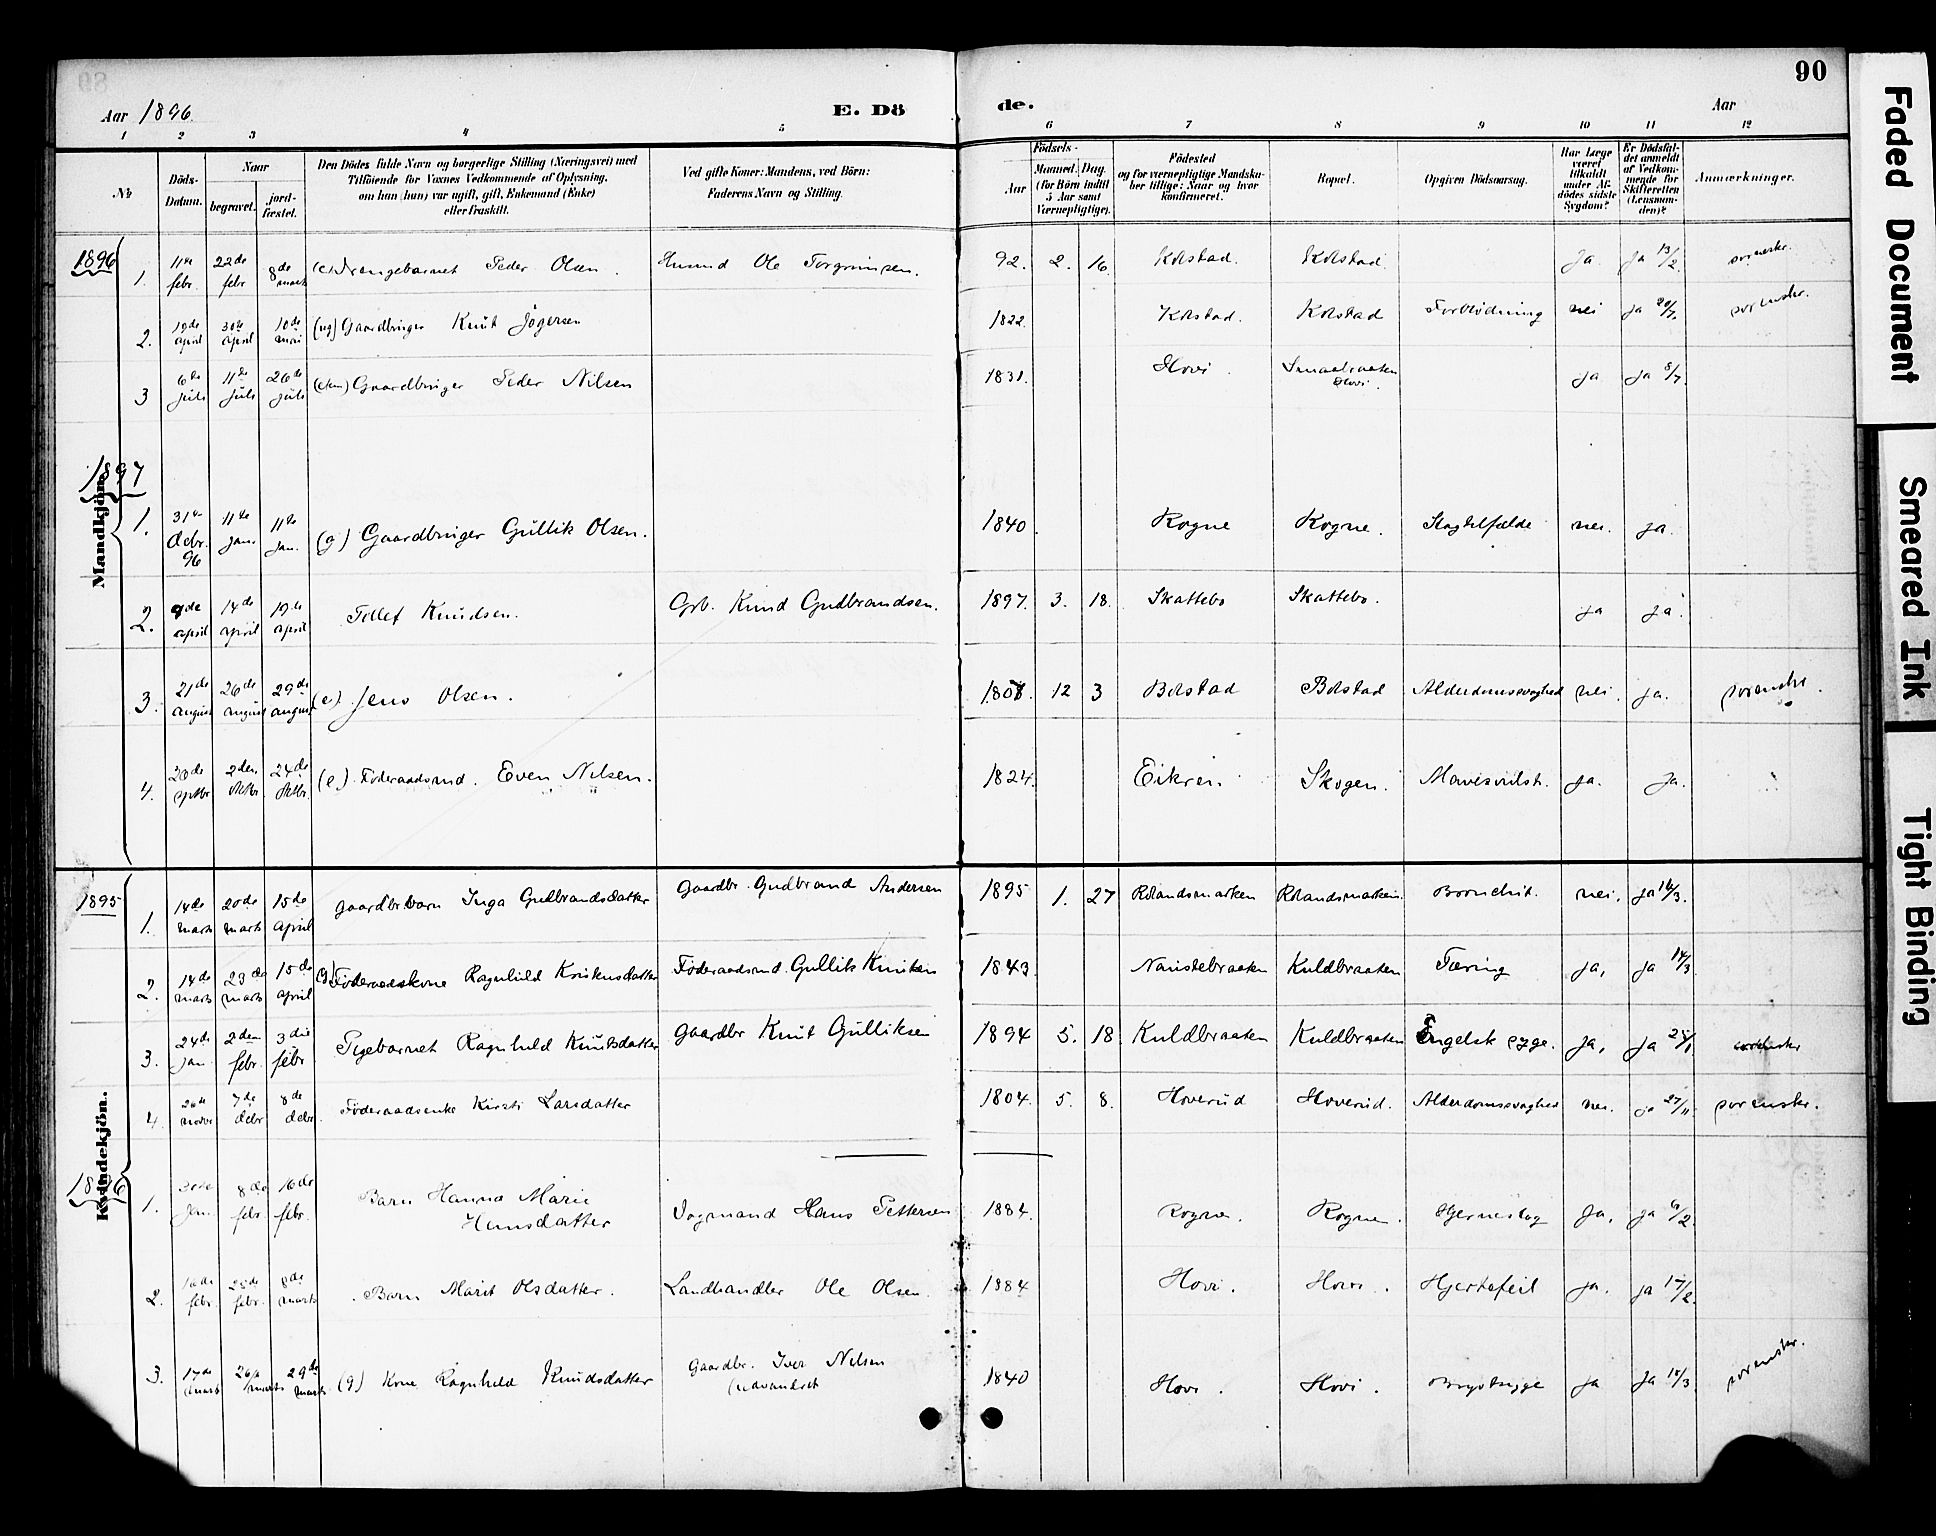 90
Aar 1896.
E. Dö
de.
Aar
1 2 3 4 5 6 7 8 9 10 11 12
№
Döds-
Datum.
Naar
begravet.
jord-
fæstet.
Den Dödes fulde Navn og borgerlige Stilling (Næringsvei) med
Tilföiende for Voxnes Vedkommende af Oplysning,
om han (hun) var ugift, gift, Enkemand (Enke)
eller fraskilt.
Ved gifte Koner: Mandens, ved Börn:
Faderens Navn og Stilling.
Födsels-
Aar
Maaned. Dag.
(for Börn indtil
5 Aar samt
Værnepligtige).
Födested
og for værnepligtige Mandska-
ber tillige: Naar og hvor
konfirmeret.
Bopæl.
Opgiven Dödsaarsag.
Har Læge
været
tilkaldt
under Af-
dödes sidste
Sygdom?
Er Dödsfal-
det anmeldt
af Vedkom-
mende for
Skifteretten
(Lensman-
den)?
Anmærkninger.
Mandkjön.
1896
1. 11te febr. 22de febr 8de marts Drengebarnet Peder Olsen. Husmd Ole Torgrimsen. 92. 2. 16. Kolstad. Kolstad. Ja. ja 13/2.
2. 19de april 30te april 10de mai (ug) Gaardbruger Knut Jögersen 1822. Kolstad. Kolstad Forblödning nei ja 20/4.
3 6te juli 11te juli 26de juli (e) Gaardbruger Peder Nilsen 1831. Hovi. Hovi. ja ja 8/7.
1897
1. 31te debr. 96 11te jan. 11te jan. (g) Gaardbruger Gullik Olsen. 1840 Rogne Rogne. Slagtilfælde nei. ja.
2. 9de april 14de april 19de april Tollef Knudsen. Grb. Knud Gudbrandsen. 1897. 3. 18. Skattebo Skattebo. ja ja.
3. 21de august 26de august 29de august (e) Jens Olsen. 12 3 Bolstad Bolstad Alderdomssvaghed nei. ja.
4. 2den oktbr 24de oktbr. (e) Föderaadsmd. Even Nilsen. 1824. Eikren Skogen. ja. ja.
Kvindekjön.
1895
1. 14de marts 20de marts 15de april gaardbr barn Inga Gudbrandsdatter gaardbr. Gudbrand Andersen 1895 1. 27 Rolandsmarken Rolandsmarken. Bronchit. nei. ja 14/3.
2. 14de marts 23de marts 15de april (g) Föderaadskone Ragnhild Kristensdatter Föderaadsmd. Gullik Knutsen 1843. Kuldbraaten Tæring ja, ja 14/3
3. 24de Jan. 2den febr. 3die febr Pigebarnet Ragnhild Knutsdatter gaardbr Knut Gulliksen 1894 5. 18. Kuldbraaten Kuldbraaten Engelsk syge. ja, ja 25/1
4. 26de novbr 7de debr 8de debr. Föderaadsenke Kirsti Larsdatter 1804. 5. 8. Hoverud Hoverud. Alderdomssvaghed nei. ja 27/11
1896
1. Jan. 8de febr. 16de febr. Barn Hanna Marie
Hansdatter Hans Pettersen 1884. Rogne. Rogne. ja, ja 6/2.
2. 16de febr. 25de febr. 8de marts Barn Marit Olsdatter. Landhandler Ole Olsen. 1884 Hovi. Hovi. Hjertefeil ja. ja 17/2.
3. 17de marts 26de marts 29de marts (g) Kone Ragnhild Knudsdatter Gaardbr. Iver Nilsen
(udvandret 1840 Hovi. Hovi. Brystsyge ja ja 18/3
Faded Document
Smeared Ink
Tight Binding